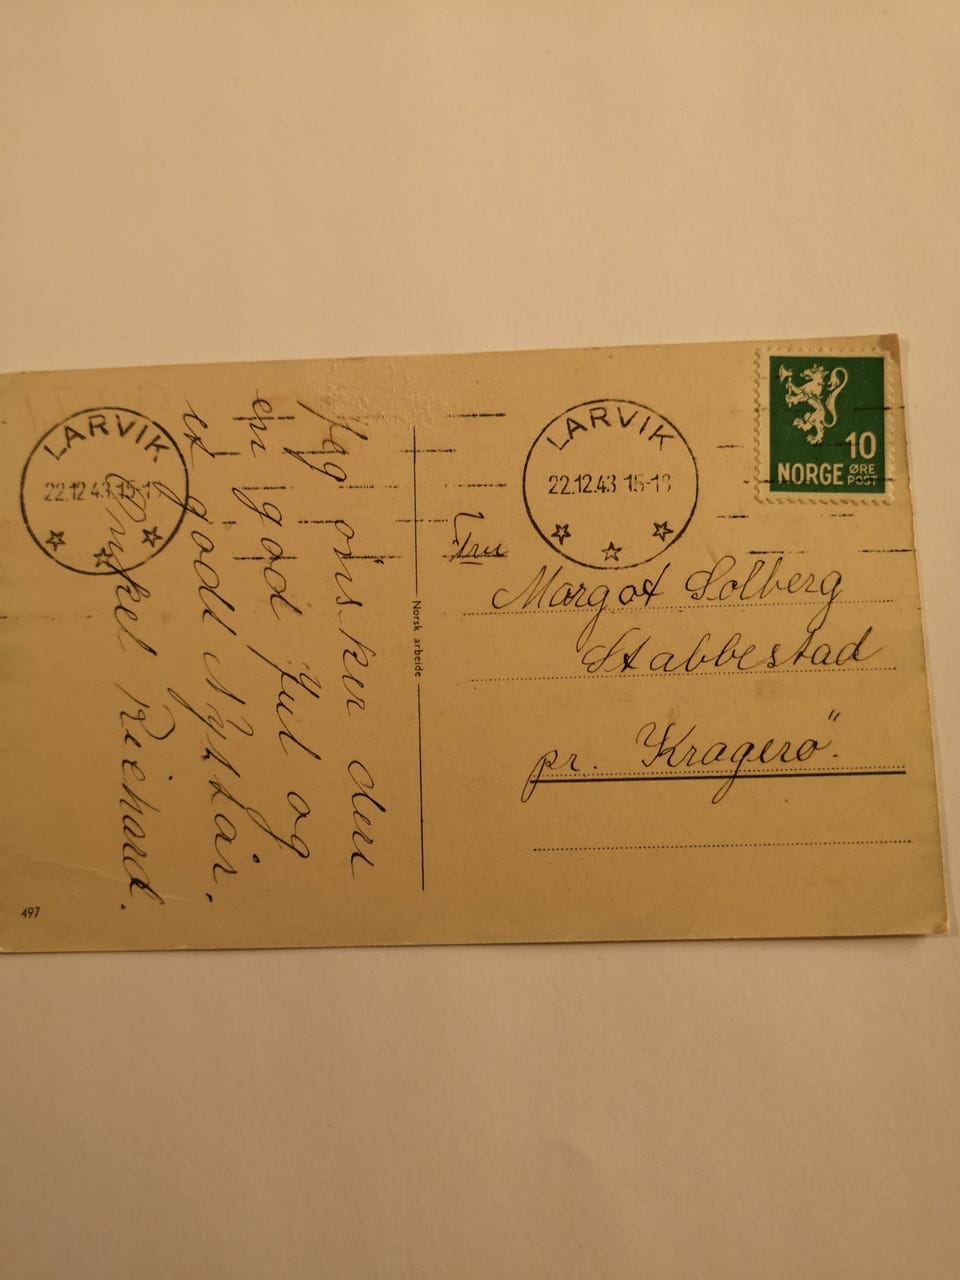 Jeg önsker den
en god Jul og
et godt Nyttår.
Onkel Reichard.
LARVIK
22.12.43 15-1
LARVIK
22.12.43 15-18
10
NORGE ØRE
POST
Fru
Margot Solberg
Stabbestad
pr. Kragerö.
Norsk arbeide
497